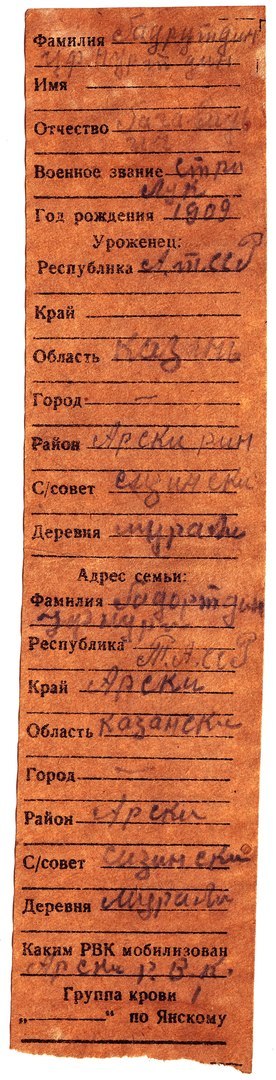 Фамилия
Имя
Отчество
Военное звание Стре
лок
Год рождения 1909
Уроженец:
Республика АтССР
Край —
Область Казань
Город —
Район Арски рин
С/совет сизински
Деревня мурали
Адрес семьи:
Фамилия
Республика Т.А.ССР
Край Арски
Область Казански
Город —
Район Арски
С/совет сизински
Деревня Мурали
Каким РВК мобилизован
Арски Р.В.К.
Группа крови 1
„ “ по Янскому